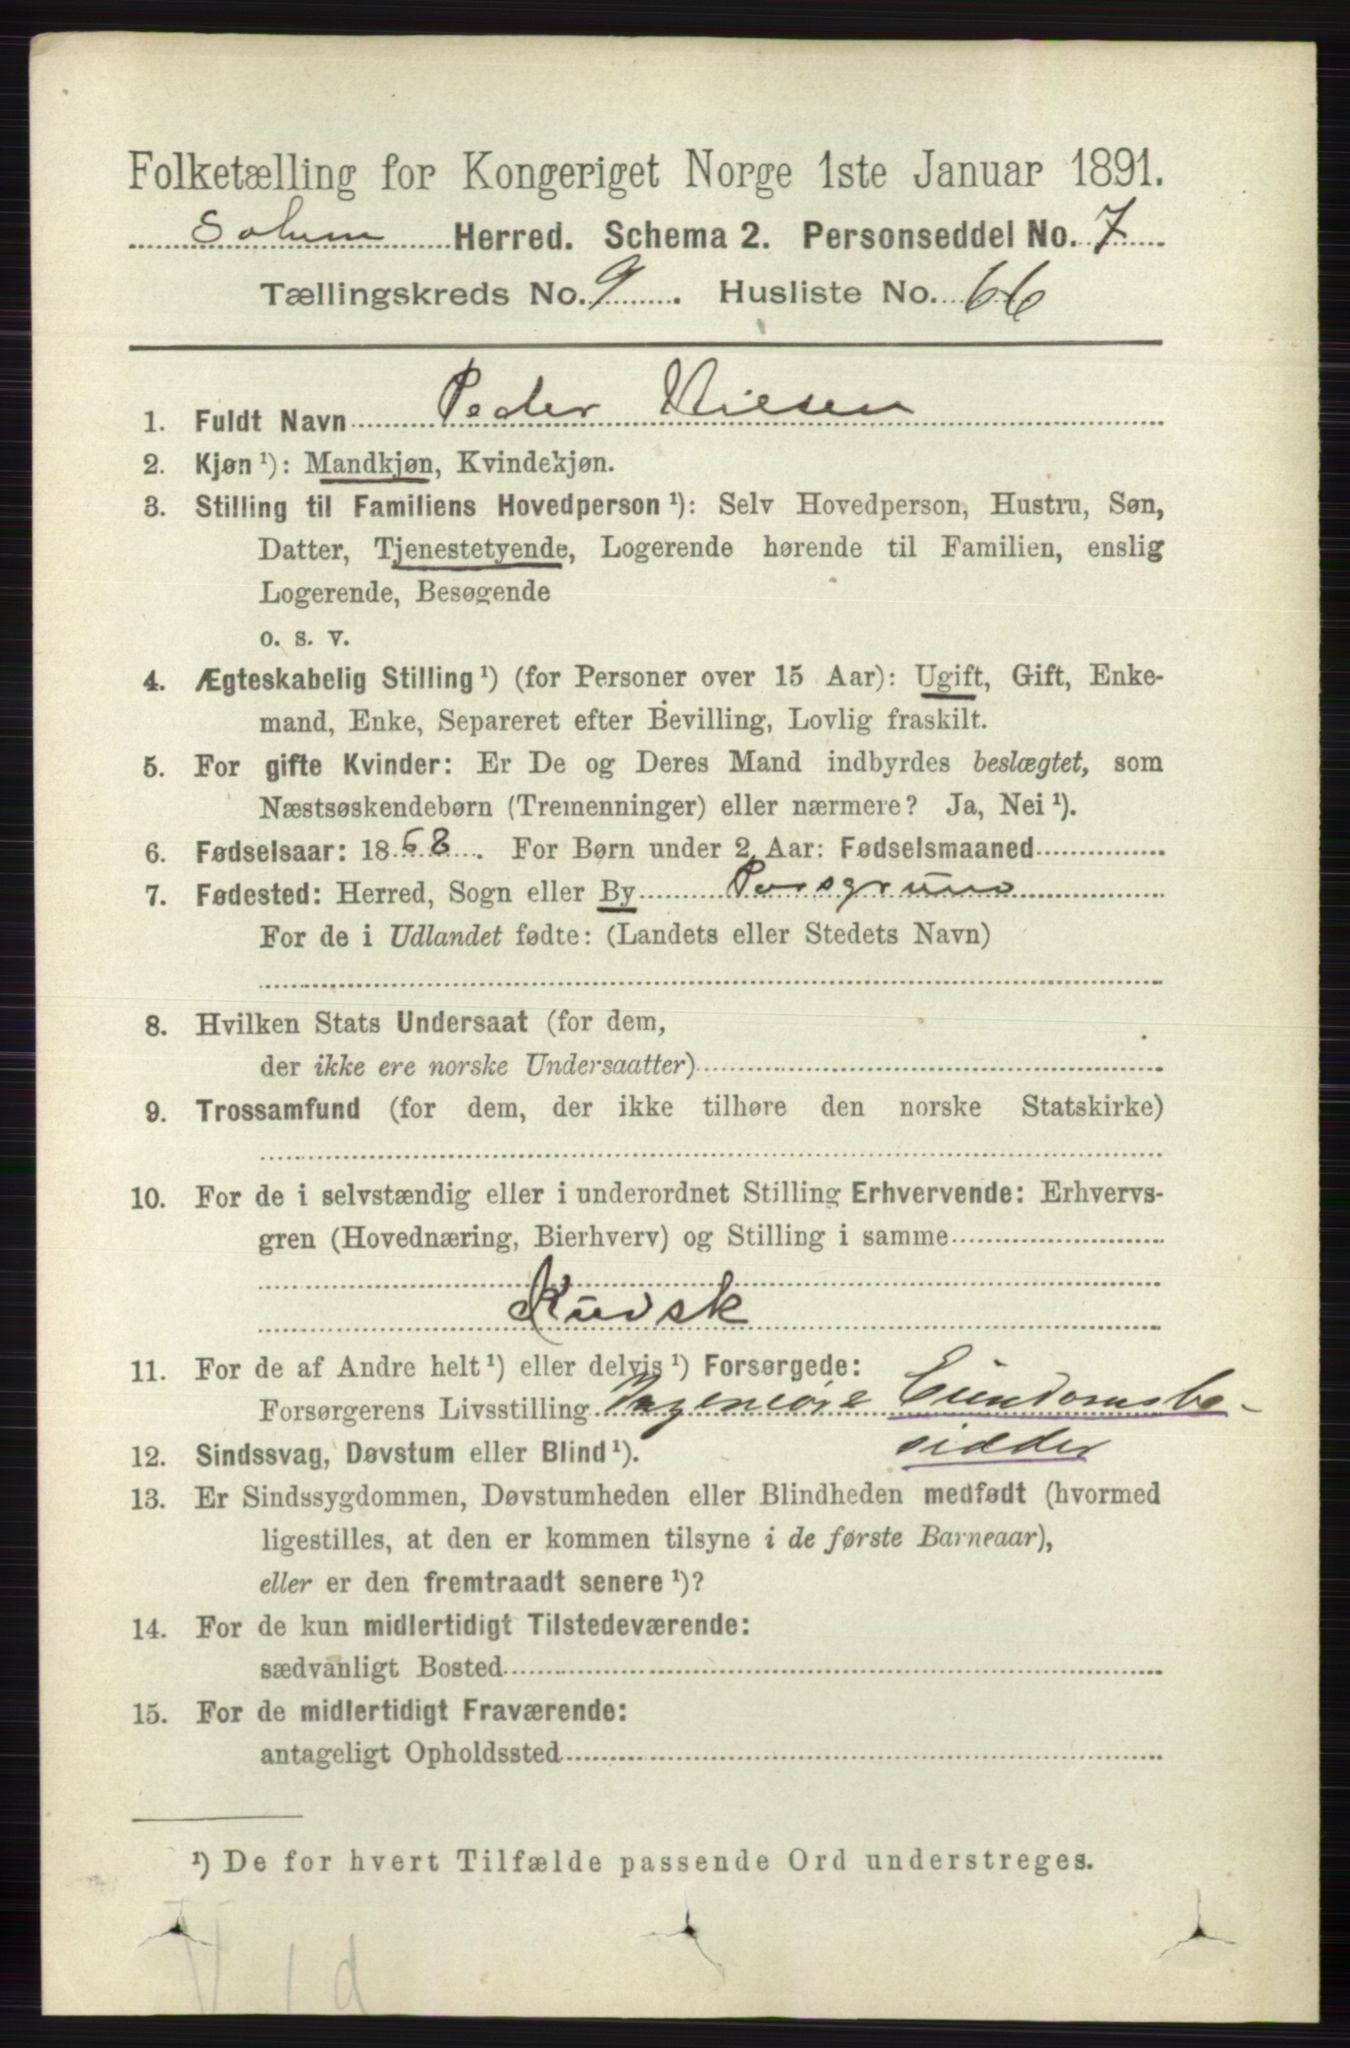 Folketælling for Kongeriget Norge 1ste Januar 1891.
Solum Herred. Schema 2. Personseddel No. 7
Tællingskreds No. 9. Husliste No. 66
1. Fuldt Navn Peder Nilsen
2. Kjøn ¹): Mandkjøn, Kvindekjøn.
3. Stilling til Familiens Hovedperson ¹): Selv Hovedperson, Hustru, Søn,
Datter, Tjenestetyende, Logerende hørende til Familien, enslig
Logerende, Besøgende
o. s. v.
4. Ægteskabelig Stilling ¹) (for Personer over 15 Aar): Ugift, Gift, Enke-
mand, Enke, Separeret efter Bevilling, Lovlig fraskilt.
5. For gifte Kvinder: Er De og Deres Mand indbyrdes beslægtet, som
Næstsøskendebørn (Tremenninger) eller nærmere? Ja, Nei ¹).
6. Fødselsaar: 1868. For Børn under 2 Aar: Fødselsmaaned
7. Fødested: Herred, Sogn eller By Porsgrund
For de i Udlandet fødte: (Landets eller Stedets Navn)
8. Hvilken Stats Undersaat (for dem,
der ikke ere norske Undersaatter)
9. Trossamfund (for dem, der ikke tilhøre den norske Statskirke)
10. For de i selvstændig eller i underordnet Stilling Erhvervende: Erhvervs-
gren (Hovednæring, Bierhverv) og Stilling i samme
Kudsk
11. For de af Andre helt ¹) eller delvis ¹) Forsørgede:
Forsørgerens Livsstilling Ingeniør & Eiendomsbe-
sidder
12. Sindssvag, Døvstum eller Blind ¹).
13. Er Sindssygdommen, Døvstumheden eller Blindheden medfødt (hvormed
ligestilles, at den er kommen tilsyne i de første Barneaar),
eller er den fremtraadt senere ¹)?
14. For de kun midlertidigt Tilstedeværende:
sædvanligt Bosted
15. For de midlertidigt Fraværende:
antageligt Opholdssted
¹) De for hvert Tilfælde passende Ord understreges.